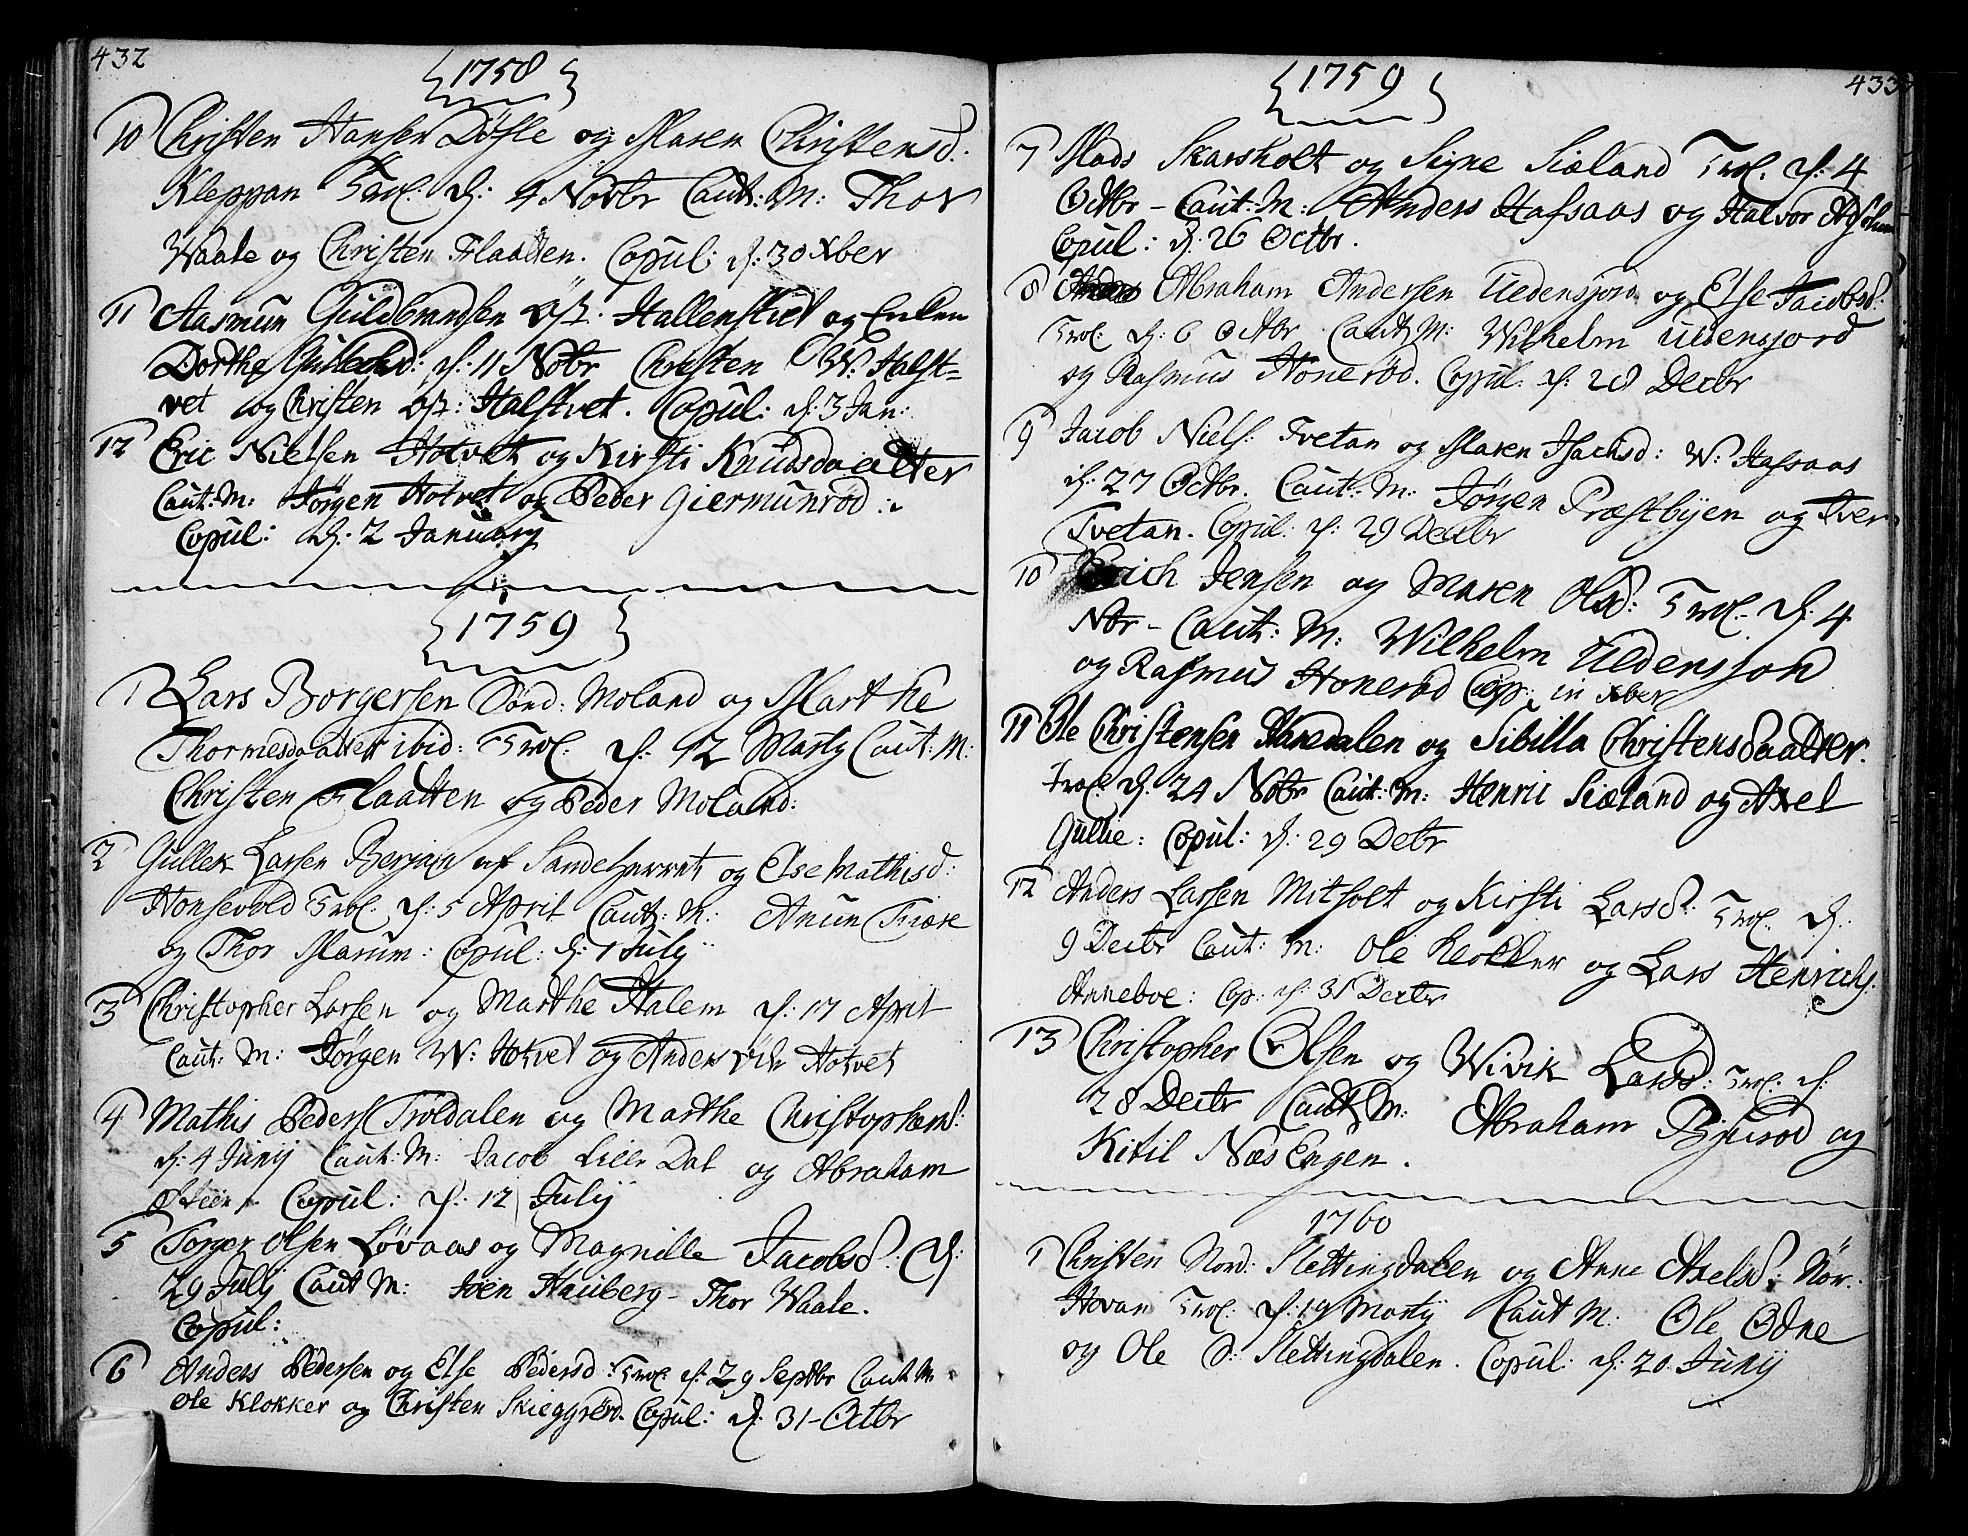 432
1758
10 Christen Hansen Døfle og Maren Christensd.
Kleppan Trol. d. 4 Novbr Caut: M: Thor
Waale og Christen Flaatten. Copul: d: 30 Xber
11 Aasmun Guldbrandsen Øst. Hallenstvet og Enken
Dorthe d: 11 Nobr Christen W: Halst-
vet og Christen Øst: Halstvet. Copul: d: 3 Jan:
12 Eric Nielsen Hotvet og Kirsti Knudsdaatter
Caut: M: Jørgen Hotvet og Peder Giermunrød:
Copul: d. 2 January
1759
1 Lars Borgersen Sønd: Moland og Marthe
Thormesdaatter ibid: Trol. d: 12 Marty Caut: M:
Christen Flaatten og Peder Moland:
2 Gullek Larsen Berjan af Sandeherret og Else Mathisd:
Honsevold Trol. d: 5 April Caut: M: Anun Tiære
og Thor Marum: Copul: d: 1 July
3 Christopher Larsen og Marthe Halem d: 17 April
Caut: M: Jørgen W: Hotvet og Anders Hotvet
4 Mathis Peders Troldalen og Marthe Christophersd:
d: 4 Junij Caut: M: Jacob Lille Dal og Abraham
Copul: d: 12 Julij
5 Torger Olsen Løvaas og Magnille Jacobsd: d:
29 July Caut M: Joen Hauberg - Thor Waale.
Copul:
6 Anders Pedersen og Else Pedersd: Trol. d: 29 Septbr Caut M.
Ole Klokker og Christen Skieggerød. Copul: d. 31 - Octbr
1759
433
7 Mads Skarsholt og Signe Siæland Trol. d: 4
Octbr - Caut: M: Anders Hafsaas og Halvor
Copul: d. 26 Octbr.
8 Abraham Andersen Uldensjord og Else Jacobsd:
Trol. d: 6 Octbr Caut M: Wilhelm Uldensjord
og Rasmus Honerød. Copul: d: 28 Decbr
9 Jacob Niels: Tvetan og Maren Isachsd: W: Hafsaas
d: 27 Octbr. Caut: M: Jørgen Præstbyen og Iver
Tvetan. Copul: d: 29 Decbr
10 Erich Jensen og Maren Olsd: Trol. d: 4
Nbr - Caut: M: Wilhelm Uldensjord
og Rasmus Honerød Cop: in Xber
11 Ole Christensen Hanedalen og Sibilla Christensdaatter.
Trol. d. 24 Nobr Caut: M: Henric Siæland og Axel
Gulke: Copul: d. 29 Decbr
12 Anders Larsen Mitholt og Kirsti Larsd: Trol. d:
9 Decbr Caut: M: Ole Klokker og Lars Henrichs.
Anneboe: Cop: d: 31 Decbr
13 Christopher Olsen og Wivik Larsd: Trol. d:
28 Decbr Caut M: Abraham Bjurød og
Kitil Næs Engen.
1760
1 Christen Nord: Slettingdalen og Anne Axelsd: Nør.
Hovan Trol. d: 19 Martij Caut M: Ole Odne
og Ole S: Slettingdalen. Copul: d. 20 Junij